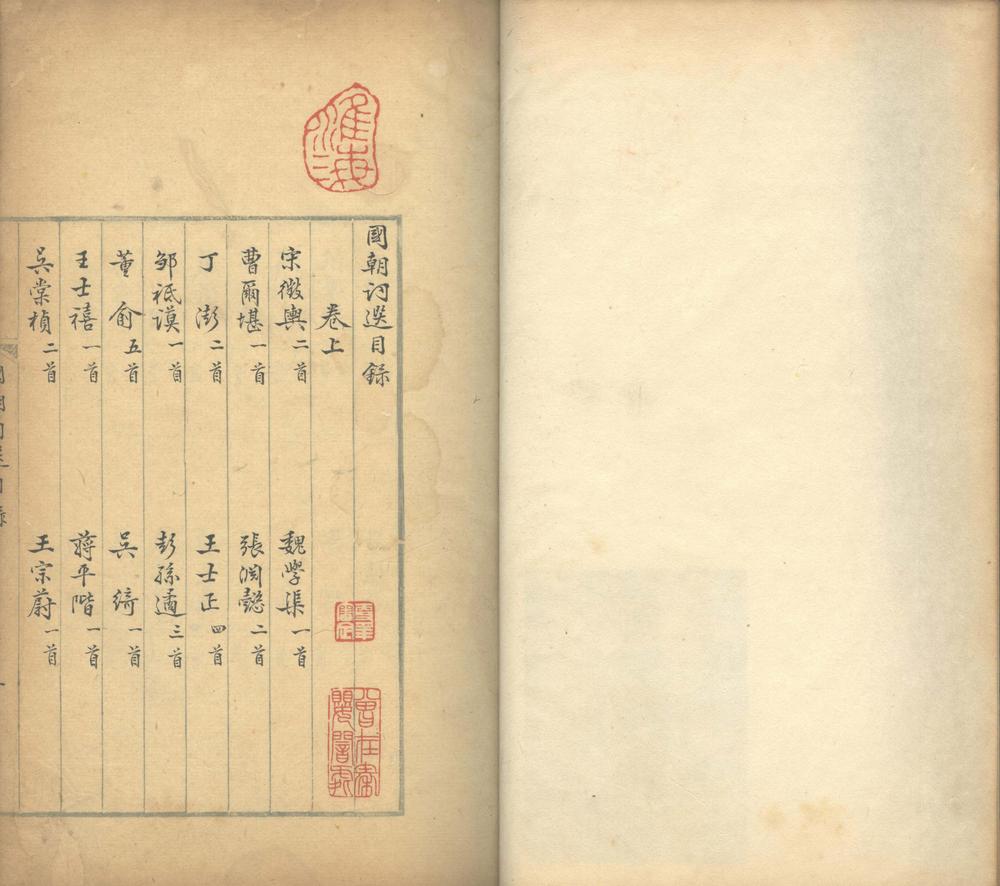 國朝詞選目錄
卷上
宋徵輿二首 魏學渠一首
曹爾堪一首 張淵懿二首
丁 澎二首 王士正四首
鄒祗謨一首 彭孫遹三首
董 俞五首 吳 綺一首
王士禧一首 蔣平階一首
吳棠楨二首 王宗蔚一首
淮海
曾在秦嬰闇處